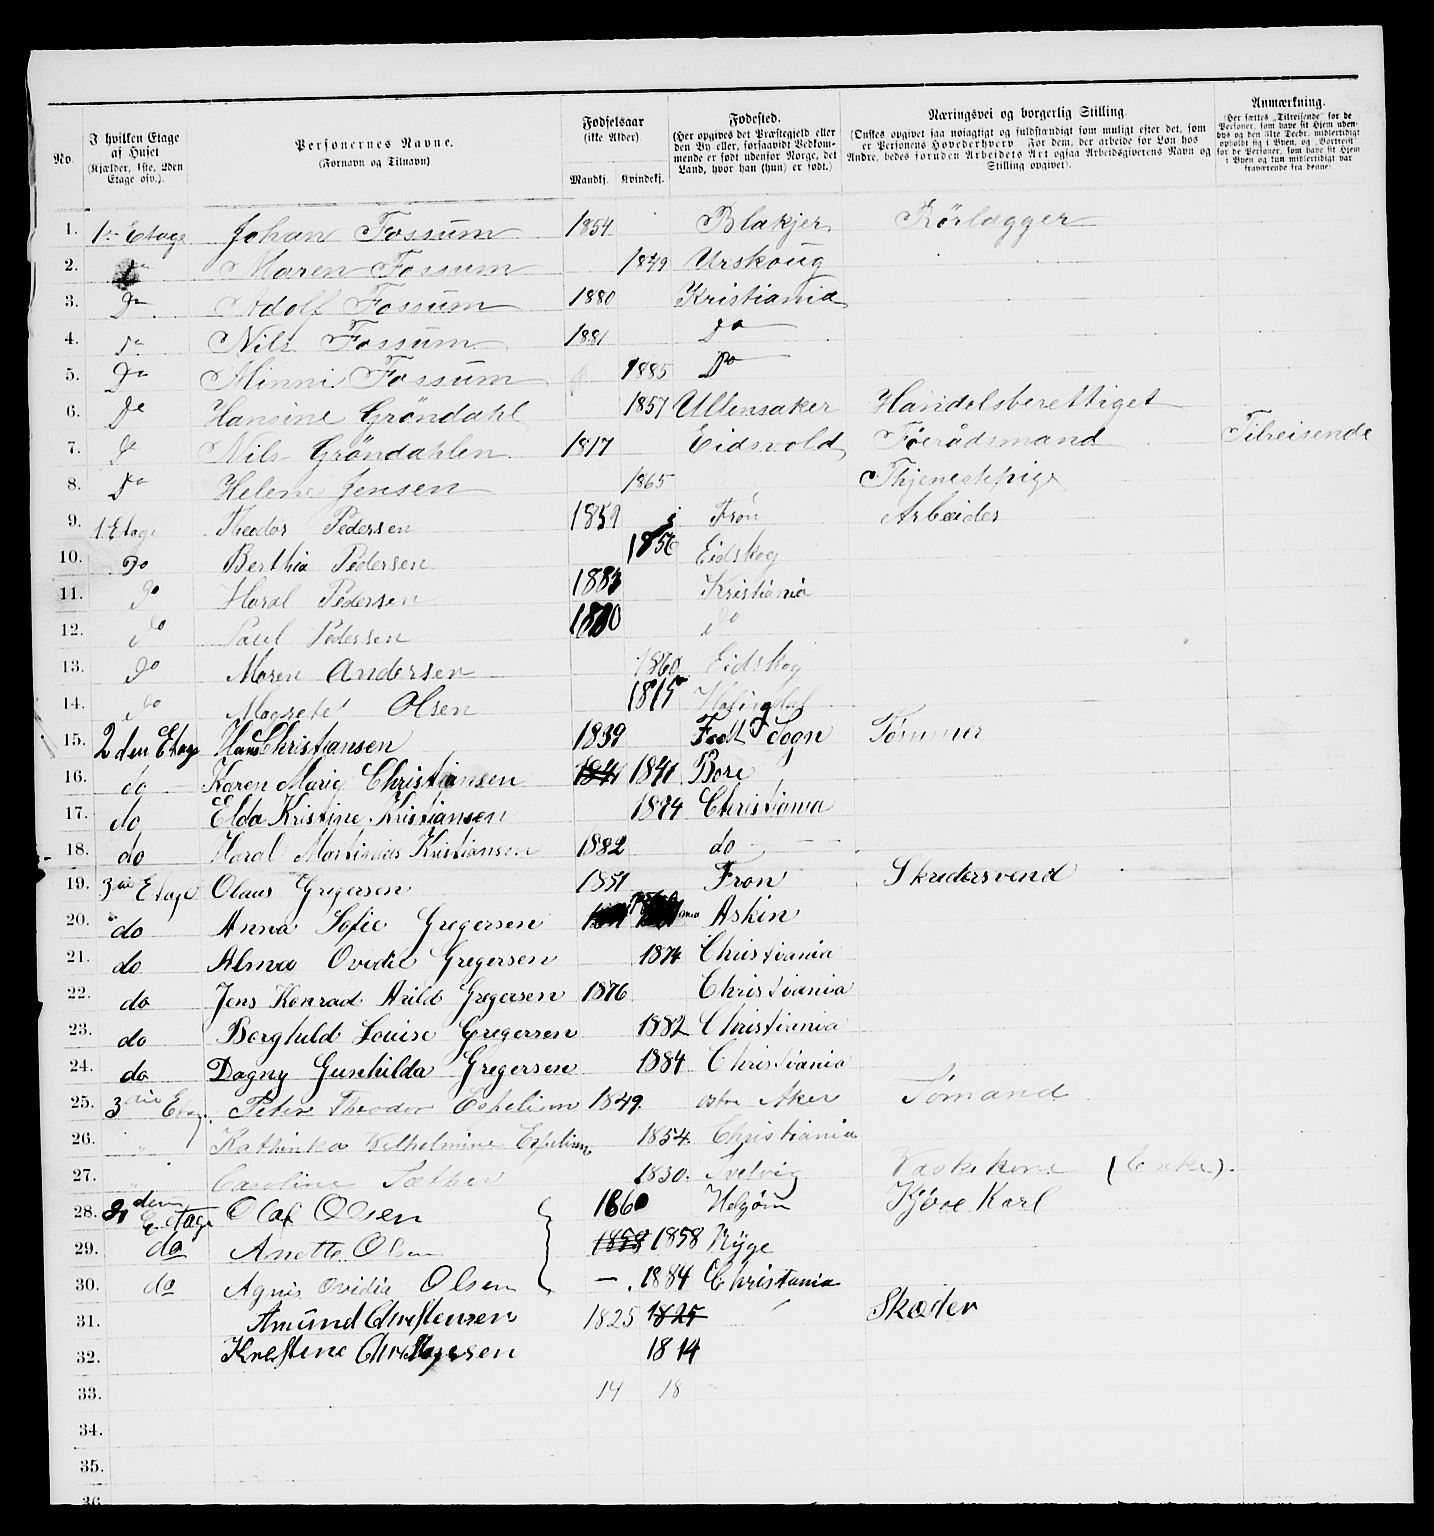 No. I hvilken Etage af Huset (Kjælder, 1ste, 2den Etage osv.). Personernes Navne. (Fornavn og Tilnavn) Fødselsaar (ikke Alder). Mandkj. Kvindekj. Fødested. (Her opgives det Præstegjeld eller den By eller, forsaavidt Vedkommende er født udenfor Norge, det Land, hvor han (hun) er født.) Næringsvei og borgerlig Stilling. (Ønskes opgivet saa nøiagtigt og fuldstændigt som muligt efter det, som er Personens Hovederhverv. For dem, der arbeide for Løn hos Andre, bedes foruden Arbeidets Art ogsaa Arbeidsgiverens Navn og Stilling opgivet). Anmærkning. (Her sættes „Tilreisende“ for de Personer, som have sit Hjem udenbys og den 31te Decbr. midlertidigt opholdt sig i Byen, og „Bortreist“ for de Personer, som have sit Hjem i Byen og kun midlertidigt var fraværende fra denne).
1. 1ste Etage Johan Fossum 1854 Blakjer Rörlægger
2. Do Maren Fossum 1849 Urskoug
3. Do Adolf Fossum 1880 Kristiania
4. Do Nils Fossum 1881 Do
5. Do Minni Fossum 1885 Do
6. Do Hansine Gröndahl 1857 Ullensaker Handelsberettiget
7. Do Nils Gröndahlen 1817 Eidsvold Föerådsmand Tilreisende
8. Do Helene Jensen 1865 Thjenestepige
9. 1 Etage Theodor Pedersen 1859 Frön Arbeider
10. Do Berthia Pedersen 1856 Eidskog
11. Do Haral Pedersen 1883 Kristiania
12. Do Paul Pedersen 1880 Do
13. Do Maren Andersen 1860 Eidskog
14. Do Magrete Olsen
15. 2den Etage Hans Christiansen 1839 Födt Sogn Tømmer
16. do Karen Marie Christiansen 1841 1841 Bore
17. do Elda Kristine Kristiansen 1874 Christiania
18. do Haral Martinius Kristiansen 1882 do
19. 3die Etage Olaus Gregersen 1851 Fron Skredersvend
20. do Anna Sofie Gregersen Askin
21. do Alma Ovidie Gregersen 1874 Christiania
22. do Jens Konrad Arild Gregersen 1876 Christiania
23. do Borghild Louise Gregersen 1882 Christiania
24. do Dagny Gunhilda Gregersen 1884 Christiania
25. 3die Etag. Peter Theodor Espelien 1849. østre Aker Tømand
26. " Kathinka Vilhelmine Espelien 1854. Christiania
27. " Caroline Sæther 1830. Svelvig Vaskekone (Enke).
28. 2den Etage Olaf Olsen 1860 Kjöre Karl
29. do Anette Olsen 1858 1858 Ryge
30. do Agnis Ovidia Olsen — . 1884 Christania
31. Amund Christensen 1825 1825 Skæder
32. Krestine Christensen 1814
33. 14 18
34.
35.
36